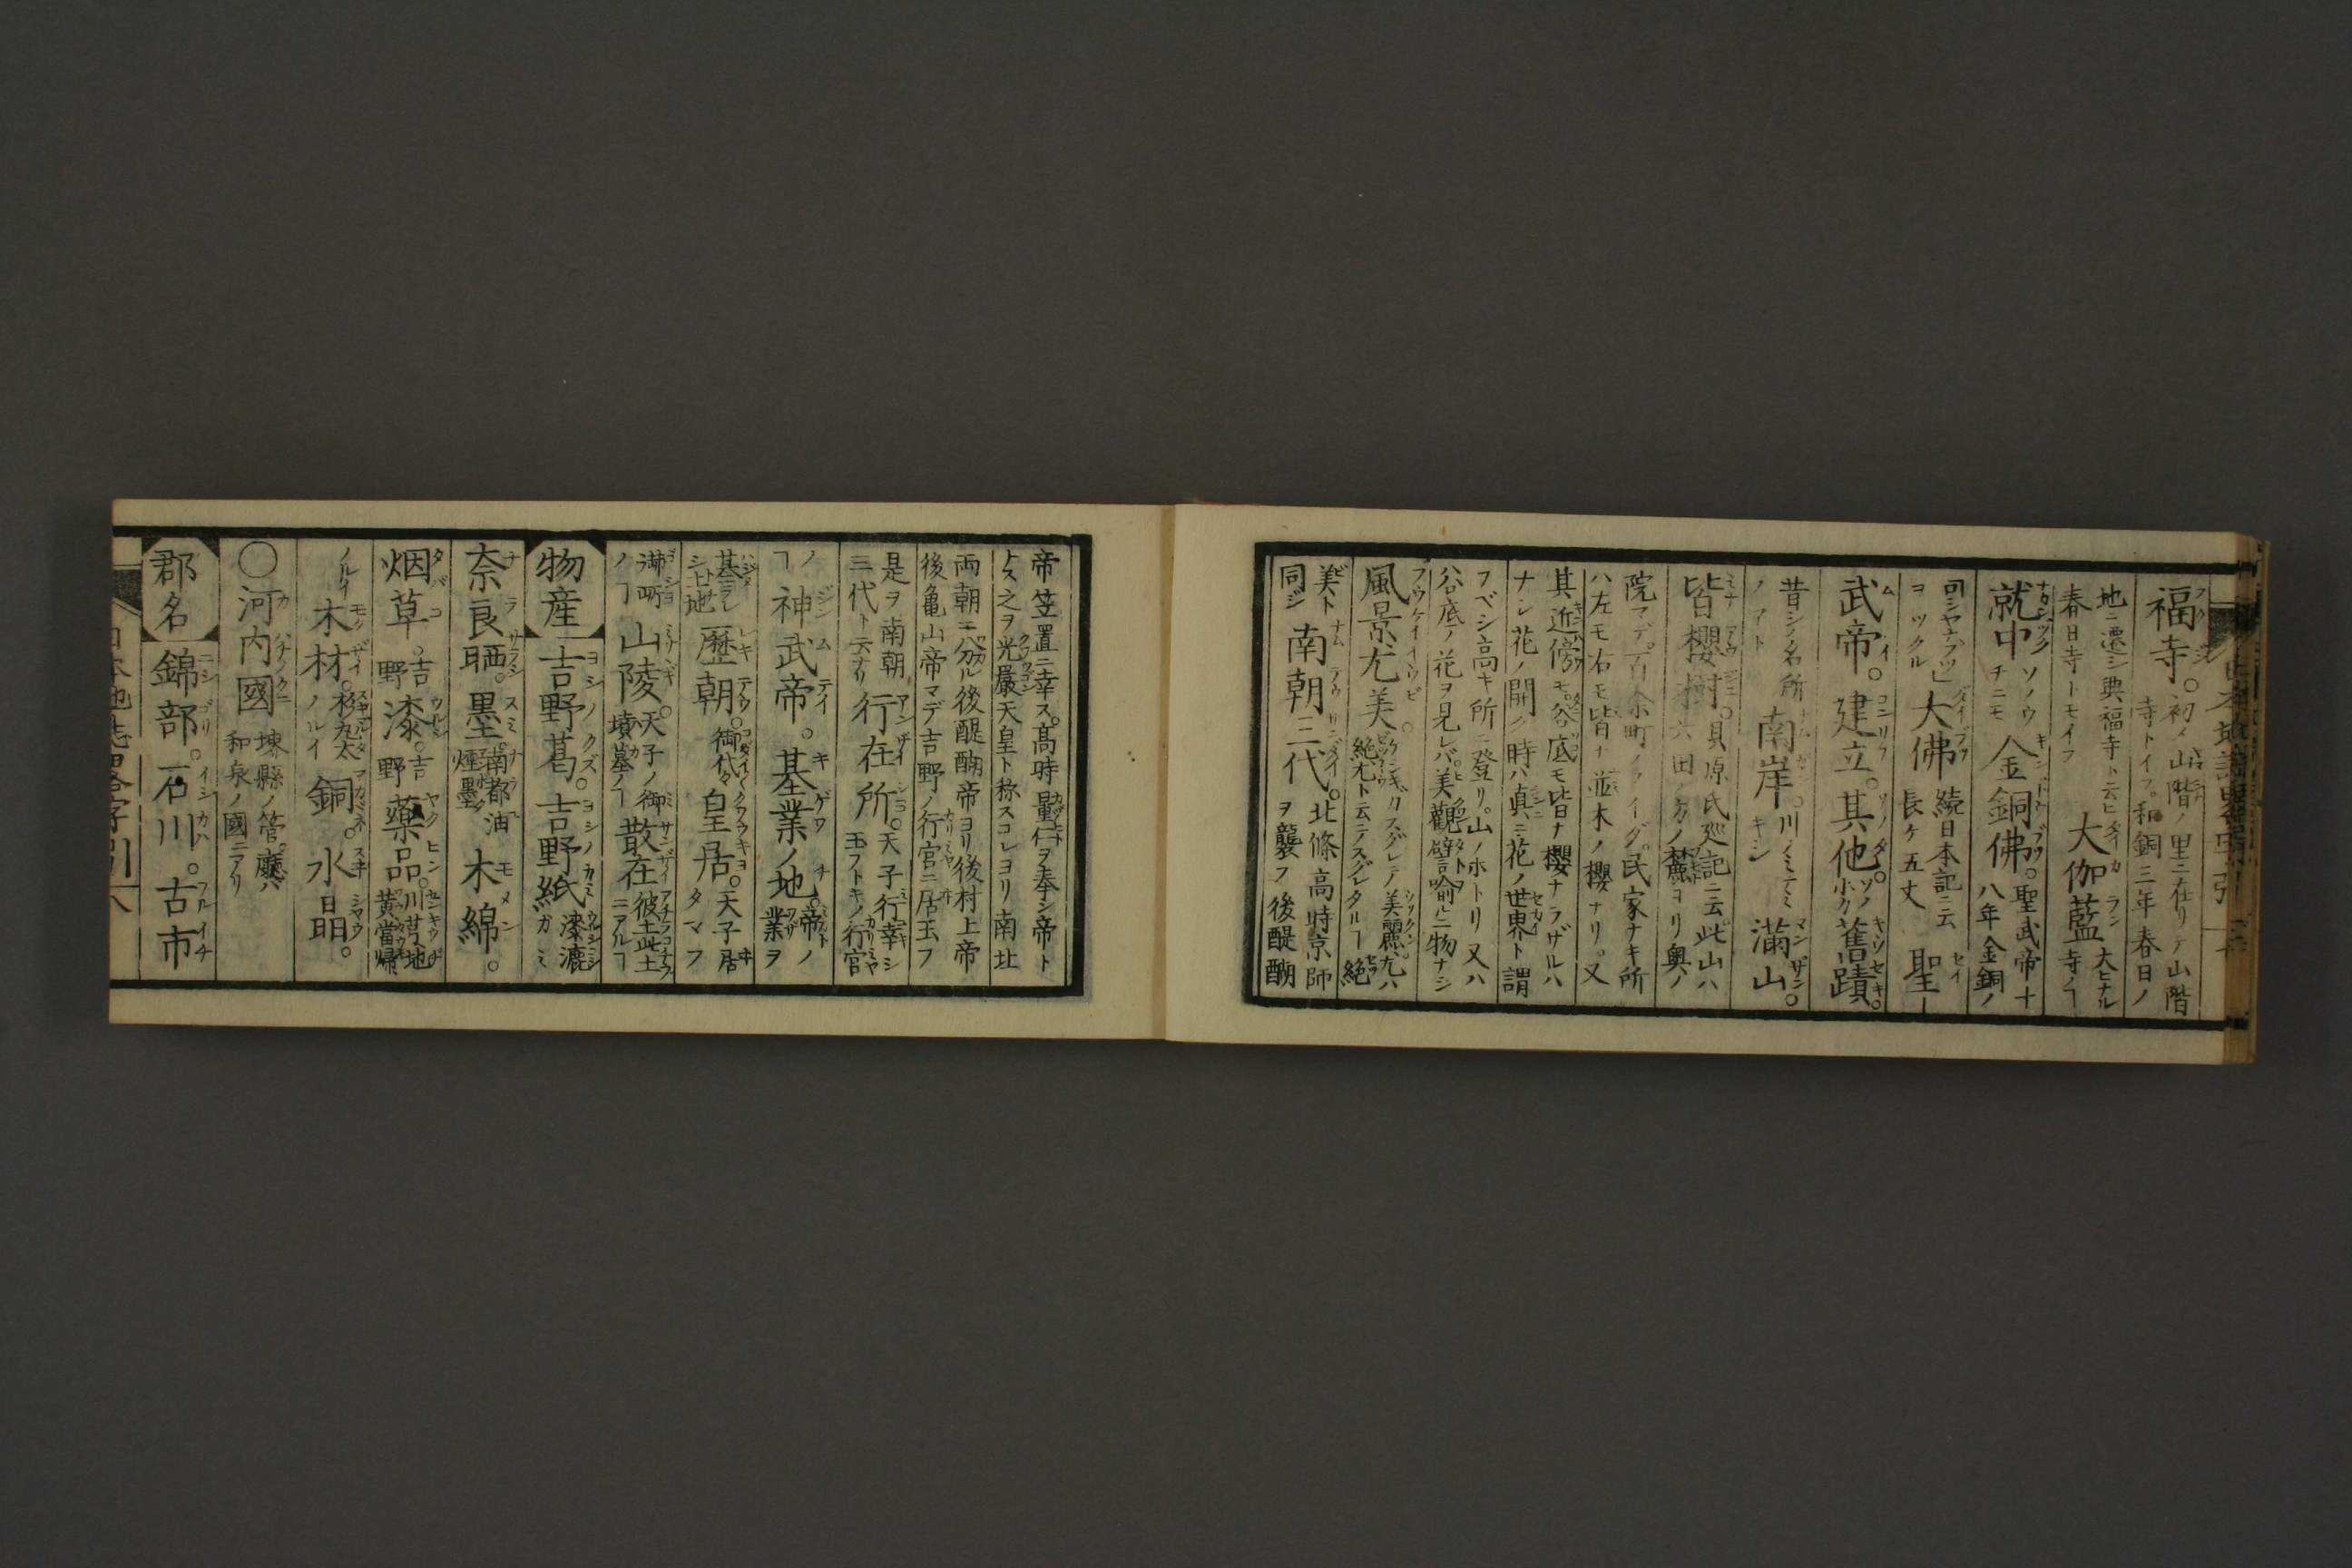 福寺。初メ山階ノ里ニ在リテ山階
寺トイフ。和銅三年春日ノ
地ニ遷シ興福寺ト云ヒ
春日寺トモイフ 大伽藍 大ヒナル
寺ノヿ
就中 ソノウ
チニモ 金銅佛。聖武帝十
八年金銅ノ
ヨツクル 大佛 続日本記ニ云
長ケ五丈 聖
武帝。建立。其他。舊蹟。
昔シノ名所
ノアト 南岸。川ノミナミ
キシ 滿山。
皆櫻樹。貝原氏廵記ニ云此山ハ
六田ノ方ノ麓ヨリ奥ノ
院マデ。百余町ノアイダ。民家ナキ所
ハ左モ右モ皆ナ並木ノ櫻ナリ。又
其近傍モ谷底モ皆ナ櫻ナラザルハ
ナシ花ノ開ク時ハ真ニ花ノ世界ト謂
フベシ高キ所ニ登リ。山ノホトリ又ハ
谷底ノ花ヲ見レバ美觀譬喩ルニ物ナシ
風景尤美
美ト
同ジ 南朝三代。北條高時京師
ヲ襲フ後醍醐
帝笠置ニ幸ス。髙時量仁ヲ奉シ帝ト
ス之ヲ光嚴天皇ト称スコレヨリ南北
両朝ニ分ル後醍醐帝ヨリ後村上帝
後亀山帝マデ吉野ノ行宮ニ居玉フ
是ヲ南朝
三代ト云ナリ 行在所。天子行幸シ
玉フトキノ行宮
ノヿ 神武帝。基業ノ地。帝ノ
業ヲ
基ラレ
シ土地 歴朝。御代々 皇居。天子居
タマフ
御所
ノヿ 山陵。天子ノ御
墳墓ノヿ 散在 彼土此土
ニアルヿ
物産 吉野葛。吉野紙 漆漉
ガミ
奈良晒。墨。南都油
煙墨 木綿。
烟草。吉
野 漆。吉
野 藥品。川芎地
黄當帰
ノルイ 木材。杉丸太
ノルイ 銅。水晶。
〇河内國 堺縣ノ管。廳ハ
和泉ノ國ニアリ
郡名 錦部。石川。古市